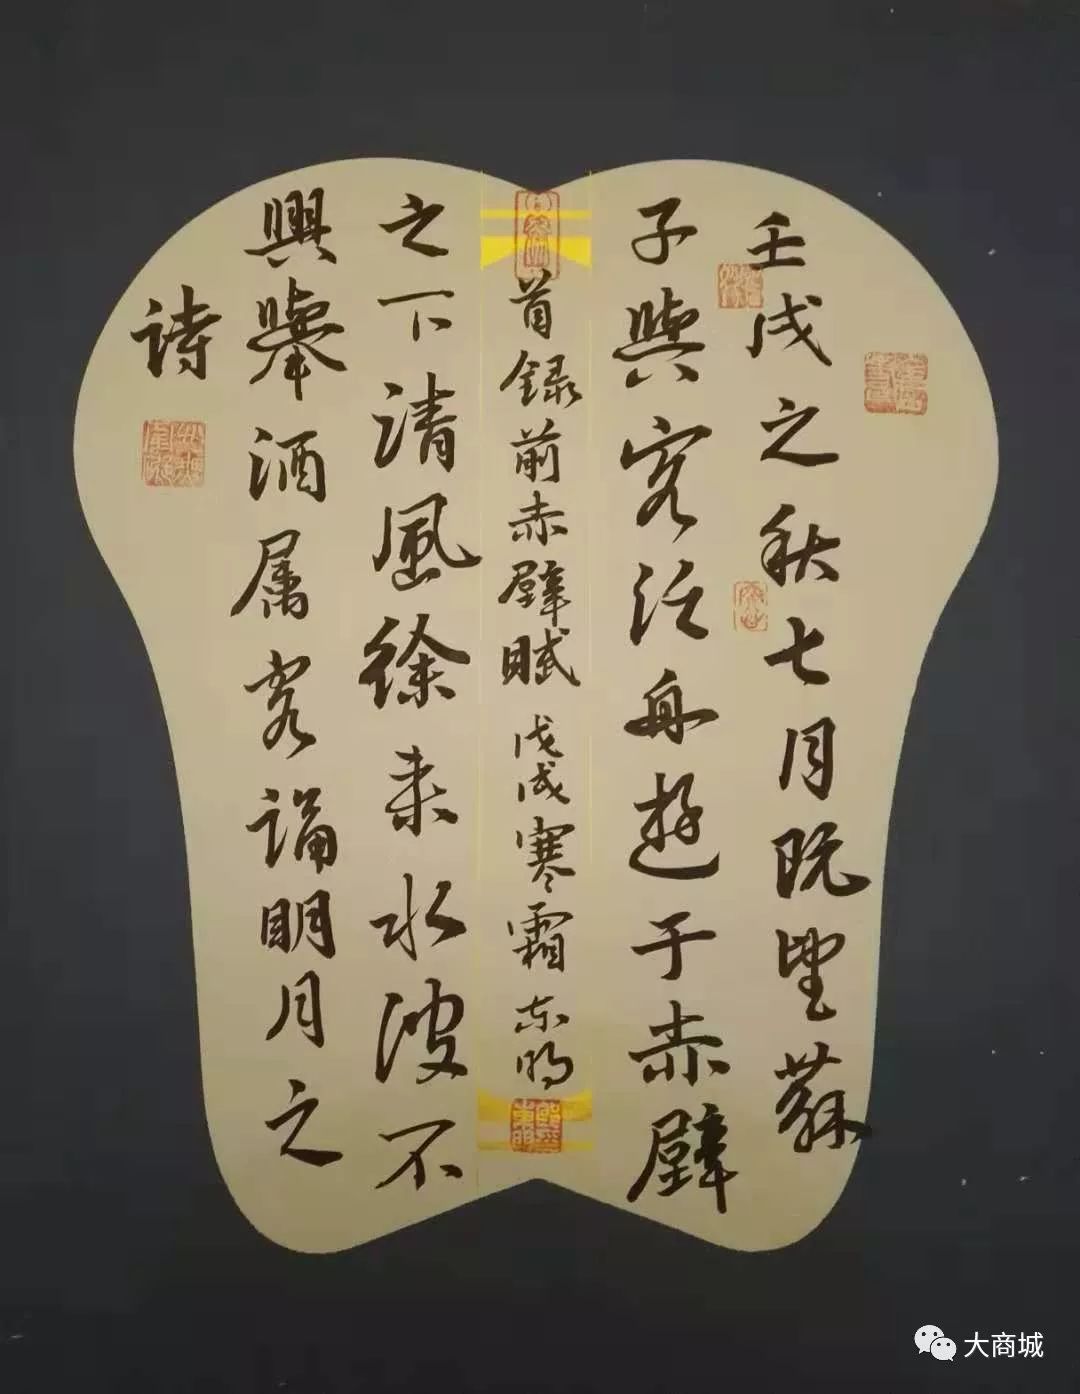 壬戌之秋七月既望蘇
子與客泛舟遊于赤壁
之下清風徐來水波不
興舉酒属客誦明月之
詩
首録前赤壁賦戊戌寒霜东明
大商城